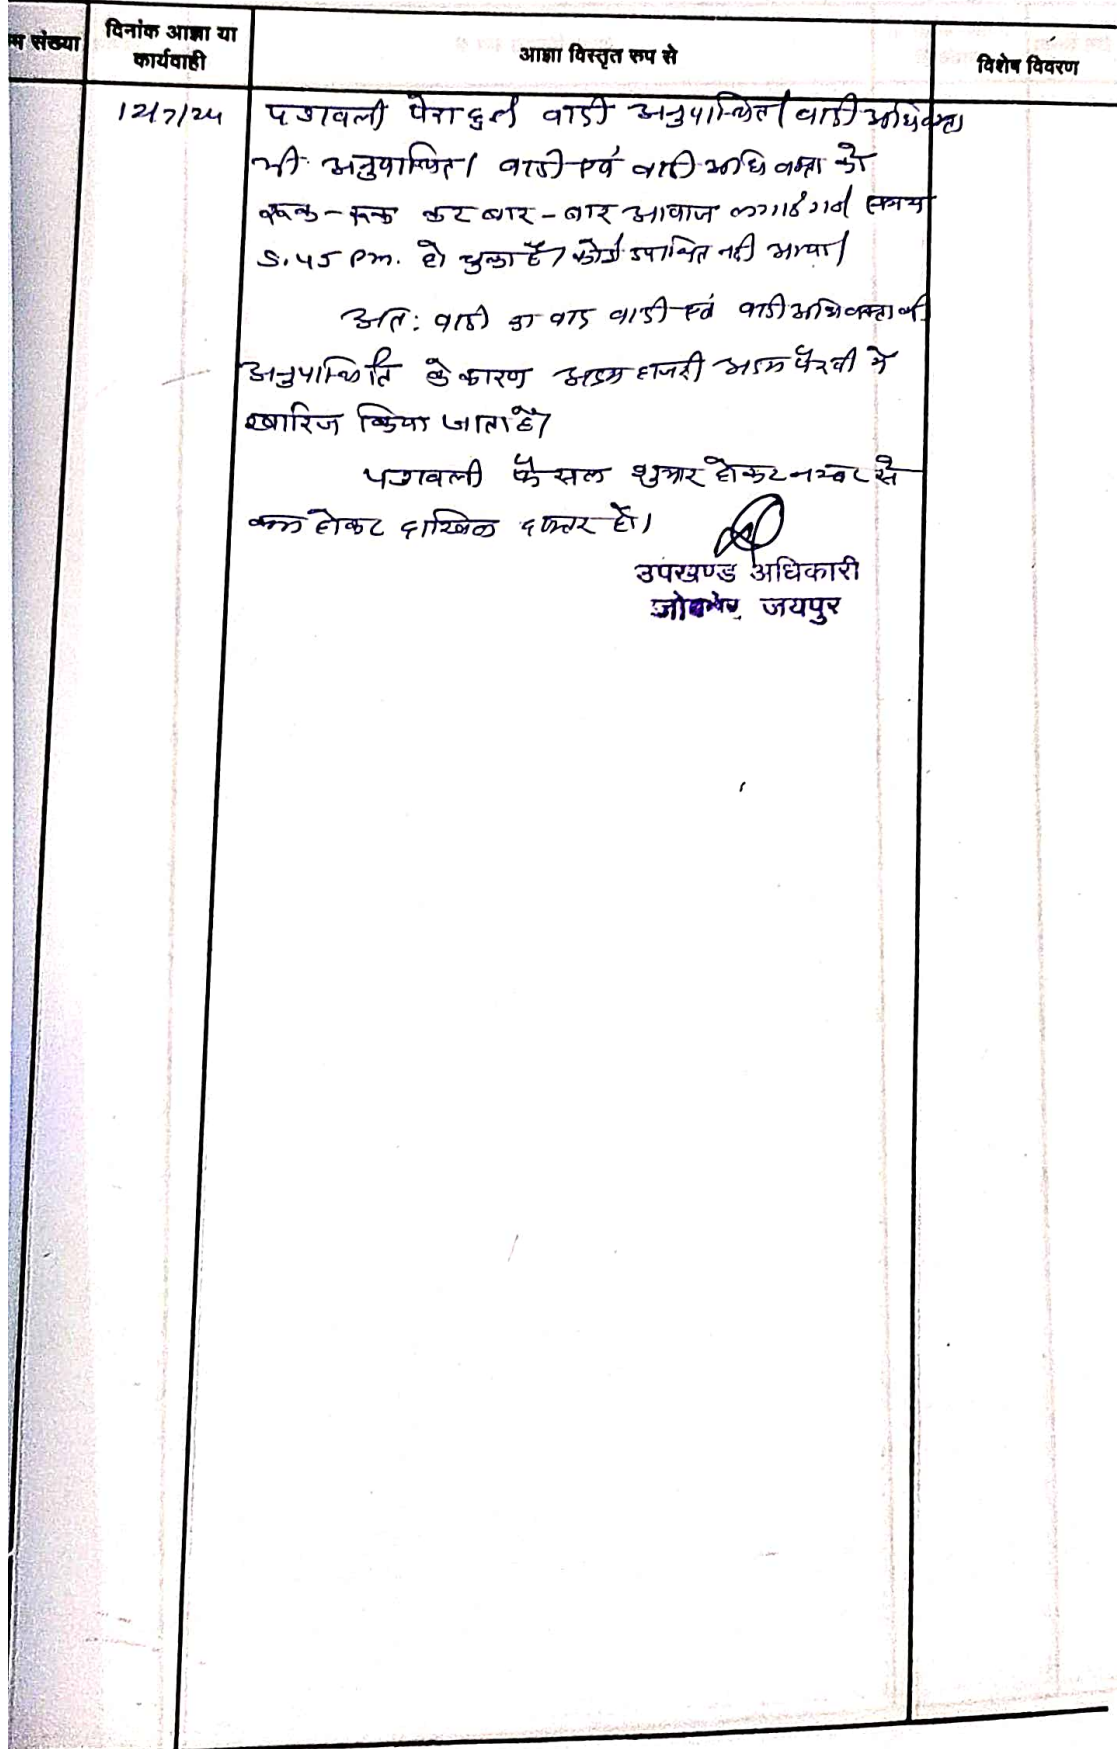 म संख्या
दिनांक आज्ञा या
कार्यवाही
आज्ञा विस्तृत रूप से
विशेष विवरण
12/7/24 पत्रावली पेश हुई वादी अनुपस्थित। वादी अधिवक्ता
भी अनुपस्थित। वादी एवं वादी अधिवक्ता को
रूक-रूक कर बार-बार आवाज लगाई गई समय
5.45 Pm. हो चुका है। कोई उपस्थित नही आया।
अत: वादी का वाद वादी एवं वादी अधिवक्ता की
अनुपस्थिति के कारण अदम हाजरी अदम पैरवी मे
खारिज किया जाता है।
पत्रावली फैसल शुमार होकर नम्बर से
कम होकर दाखिल दफ्तर हो।
उपखण्ड अधिकारी
जोबनेर, जयपुर